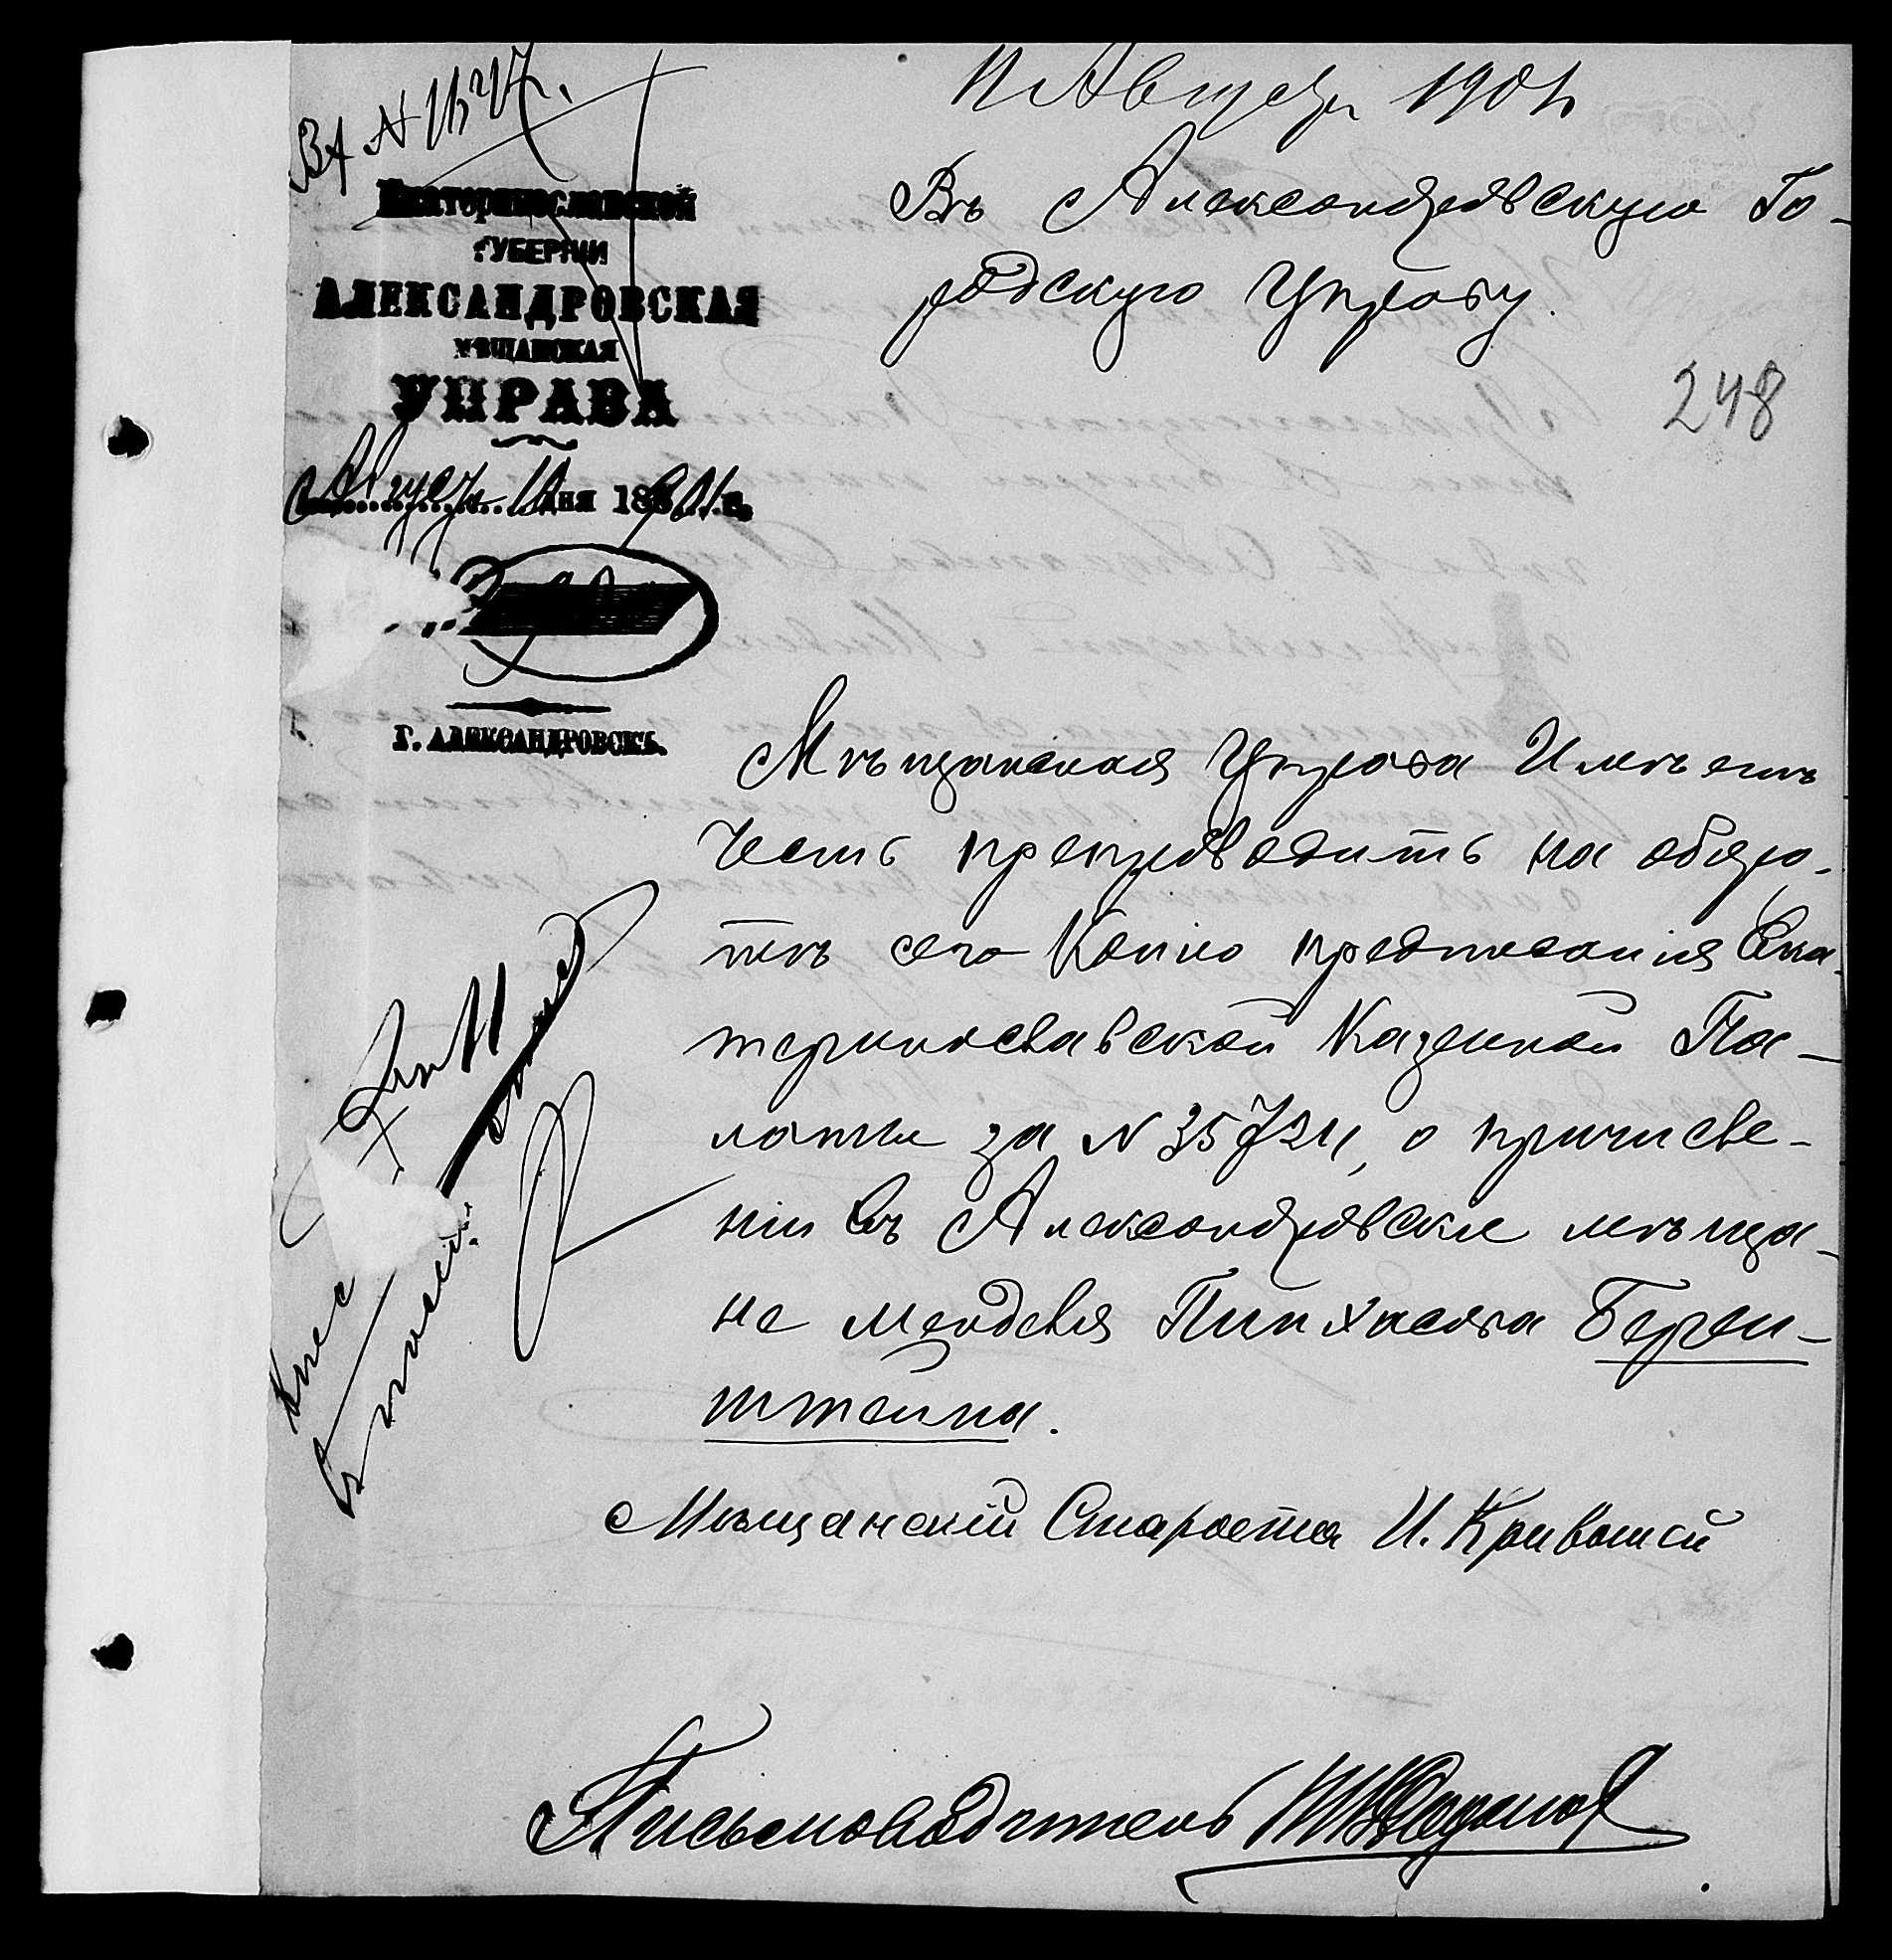 11 Августа 1901 г.
Вх №
Екатеринославской
ГУБЕРНИИ
АЛЕКСАНДРОВСКАЯ
МѢЩАНСКАЯ
УПРАВА
Августа дня
Г. АЛЕКСАНДРОВСКЪ.
Въ Александровскую Го-
родскую Управу.
248
Мѣщанская Управа Имѣетъ
честь препроводить на оборо-
тѣ сего Копію предписанія Ека-
теринославской Казенной Па-
латы за N 35724, о причисле-
ніи въ Александровскіе мѣща-
не Менделя Пинхасова Берен-
штейна.
Мѣщанскій Староста И. Кривошей
Письмоводитель